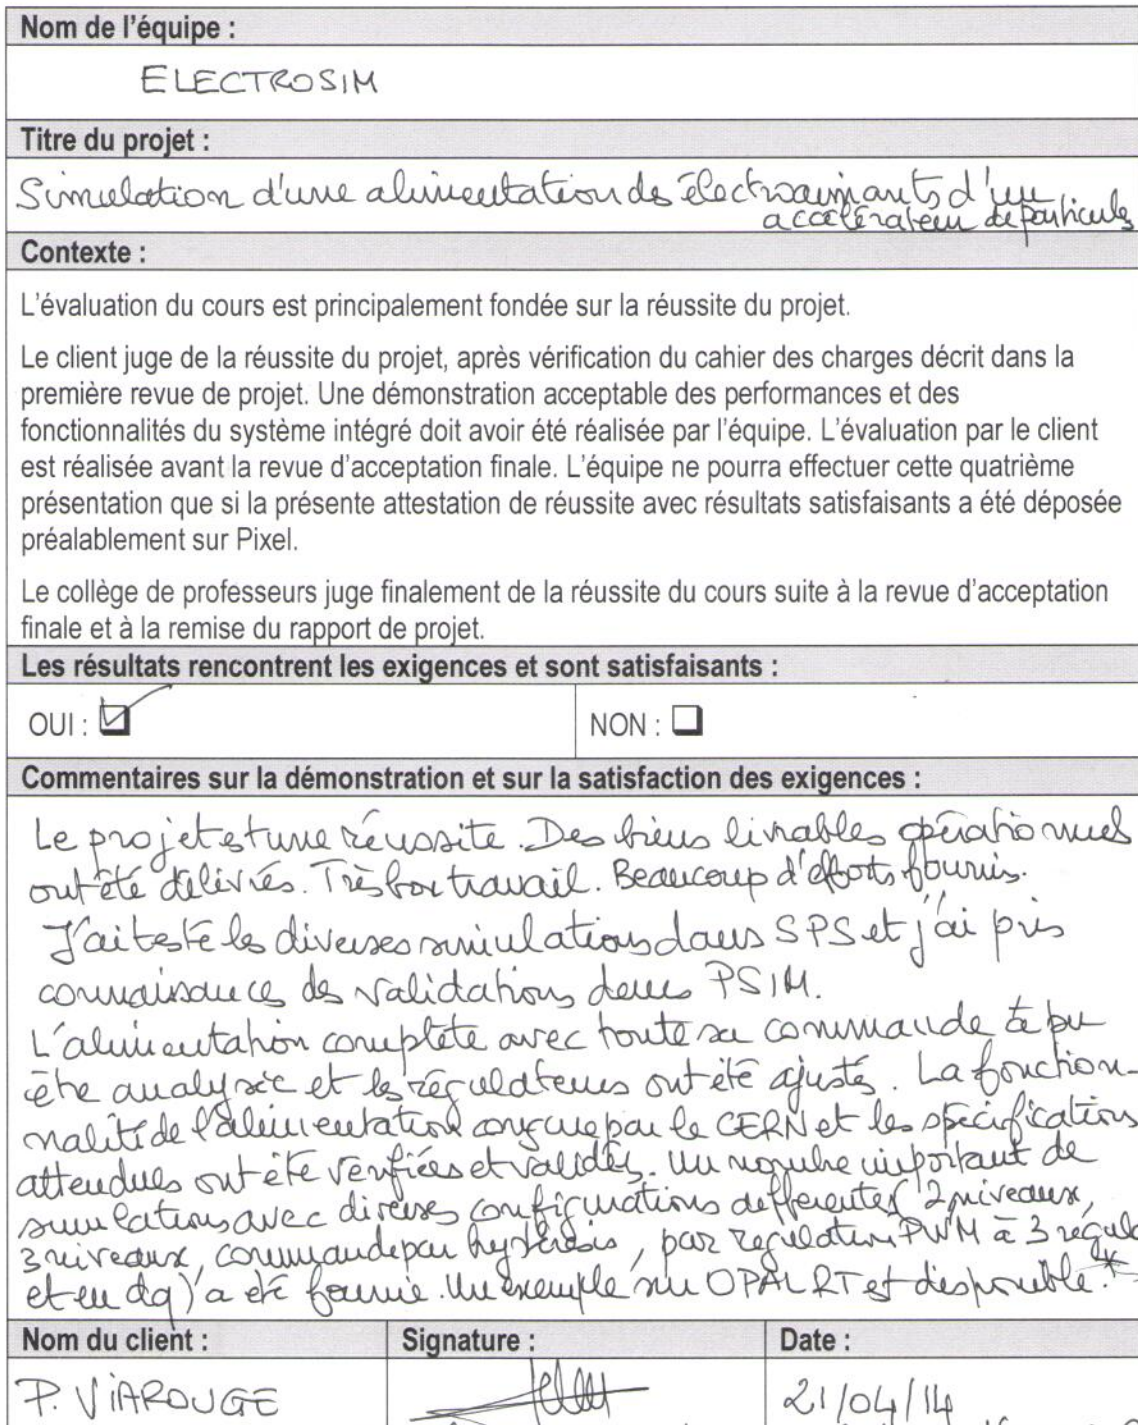 Nom de l'équipe :
ELECTROSIM
Titre du projet :
Simulation d'une alimentation des électroaimants d'un
accélérateur de particules
Contexte :
L'évaluation du cours est principalement fondée sur la réussite du projet.
Le client juge de la réussite du projet, après vérification du cahier des charges décrit dans la
première revue de projet. Une démonstration acceptable des performances et des
fonctionnalités du système intégré doit avoir été réalisée par l'équipe. L'évaluation par le client
est réalisée avant la revue d'acceptation finale. L'équipe ne pourra effectuer cette quatrième
présentation que si la présente attestation de réussite avec résultats satisfaisants a été déposée
préalablement sur Pixel.
Le collège de professeurs juge finalement de la réussite du cours suite à la revue d'acceptation
finale et à la remise du rapport de projet.
Les résultats rencontrent les exigences et sont satisfaisants :
OUI : ☑ NON : ☐
Commentaires sur la démonstration et sur la satisfaction des exigences :
Le projet est une réussite. Des biens livrables opérationnels
ont été délivrés. Très bon travail. Beaucoup d'efforts fournis.
J'ai testé les diverses simulations dans SPS et j'ai pris
connaissances des validations dans PSIM.
L'alimentation complète avec toute sa commande a pu
être analysée et les régulateurs ont été ajustés. La fonction-
nalité de l'alimentation conçue par le CERN et les spécifications
attendues ont été vérifiées et validées. Un nombre important de
simulations avec diverses configurations differentes (2 niveaux,
3 niveaux, commande par hystérésis, par regulation PWM à 3 regula
et en dq) a été fournie. Un exemple sur OPAL RT est disponible.*
Nom du client : Signature : Date :
P. VIAROUGE 21/04/14